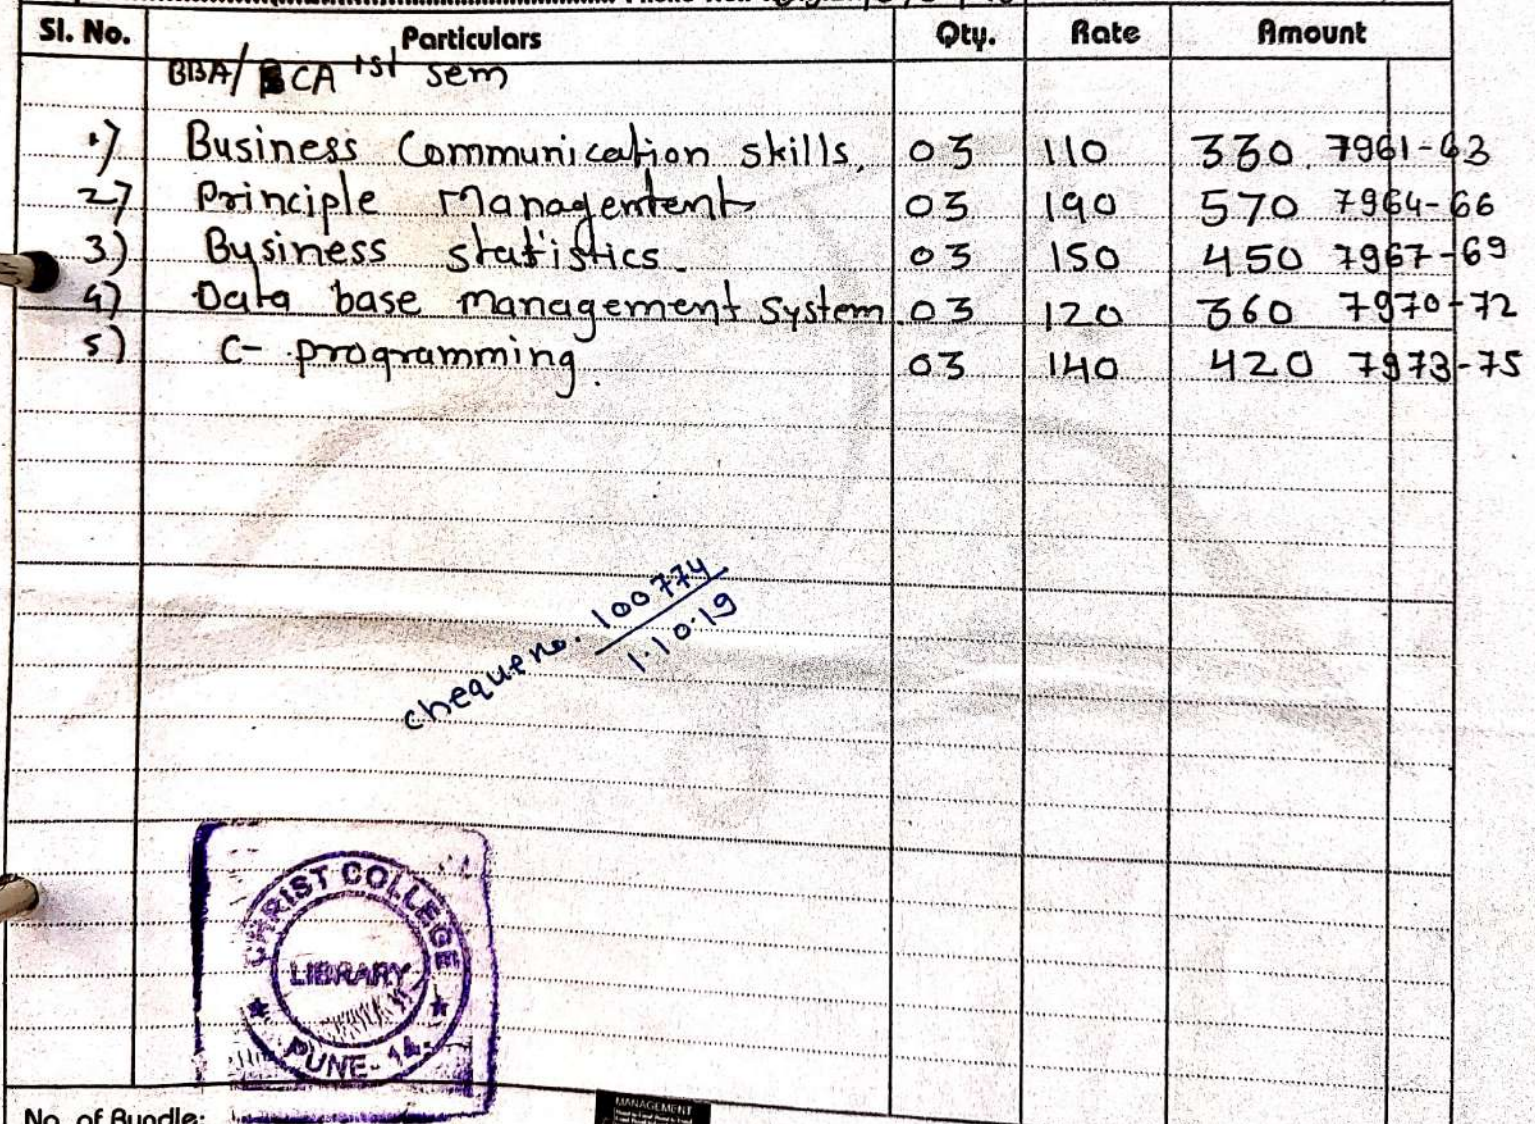 Sl. No. Particulars Qty. Rate Amount
BBA/BCA 1st sem
1) Business Communication skills. 03 110 330 7961-63
2) Principle Management 03 190 570 7964-66
3) Business statistics. 03 150 450 7967-69
4) Data base management System. 03 120 360 7970-72
5) C- programming. 03 140 420 7973-75
cheque no. 100774
1.10.19
CHRIST COLLEGE
LIBRARY
PUNE-14.
No. of Bundle:
MANAGEMENT